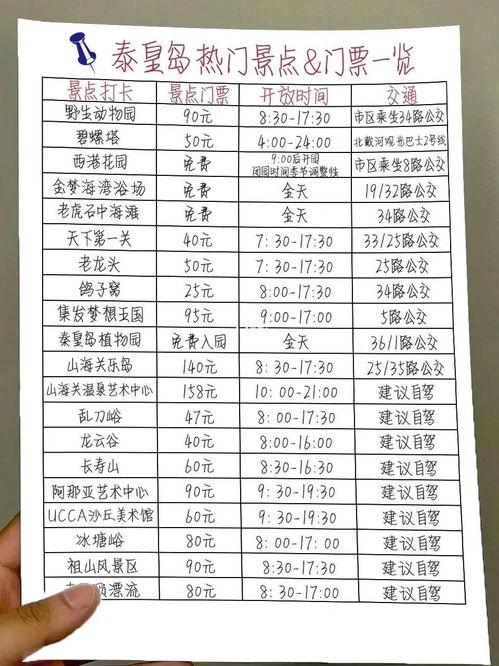 秦皇岛热门景点&门票一览
景点打卡 景点门票 开放时间 交通
野生动物园 90元 8:30-17:30 市区乘坐34路公交
碧螺塔 50元 4:00-24:00 北戴河观光巴士2号线
西港花园 免费 9:00后开园 闭园时间季节调整性 市区乘坐8路公交
金梦海湾浴场 免费 全天 19/32路公交
老虎石中海滩 免费 全天 34路公交
天下第一关 40元 7:30-17:30 33/25路公交
老龙头 50元 7:30-17:30 25路公交
鸽子窝 25元 8:00-17:00 34路公交
集发梦想王国 95元 9:00-17:00 5路公交
秦皇岛植物园 免费入园 全天 36/1路公交
山海关乐岛 140元 8:30-17:30 25/35路公交
山海关温泉艺术中心 158元 10:00-21:00 建议自驾
乱刀峪 47元 8:00-17:30 建议自驾
龙云谷 40元 8:00-16:00 建议自驾
长寿山 60元 8:30-16:30 建议自驾
阿那亚艺术中心 90元 9:30-19:30 建议自驾
UCCA沙丘美术馆 60元 9:30-19:30 建议自驾
冰塘峪 80元 8:00-17:00 建议自驾
祖山风景区 90元 8:30-17:30 建议自驾
漂流 80元 8:30-17:00 建议自驾